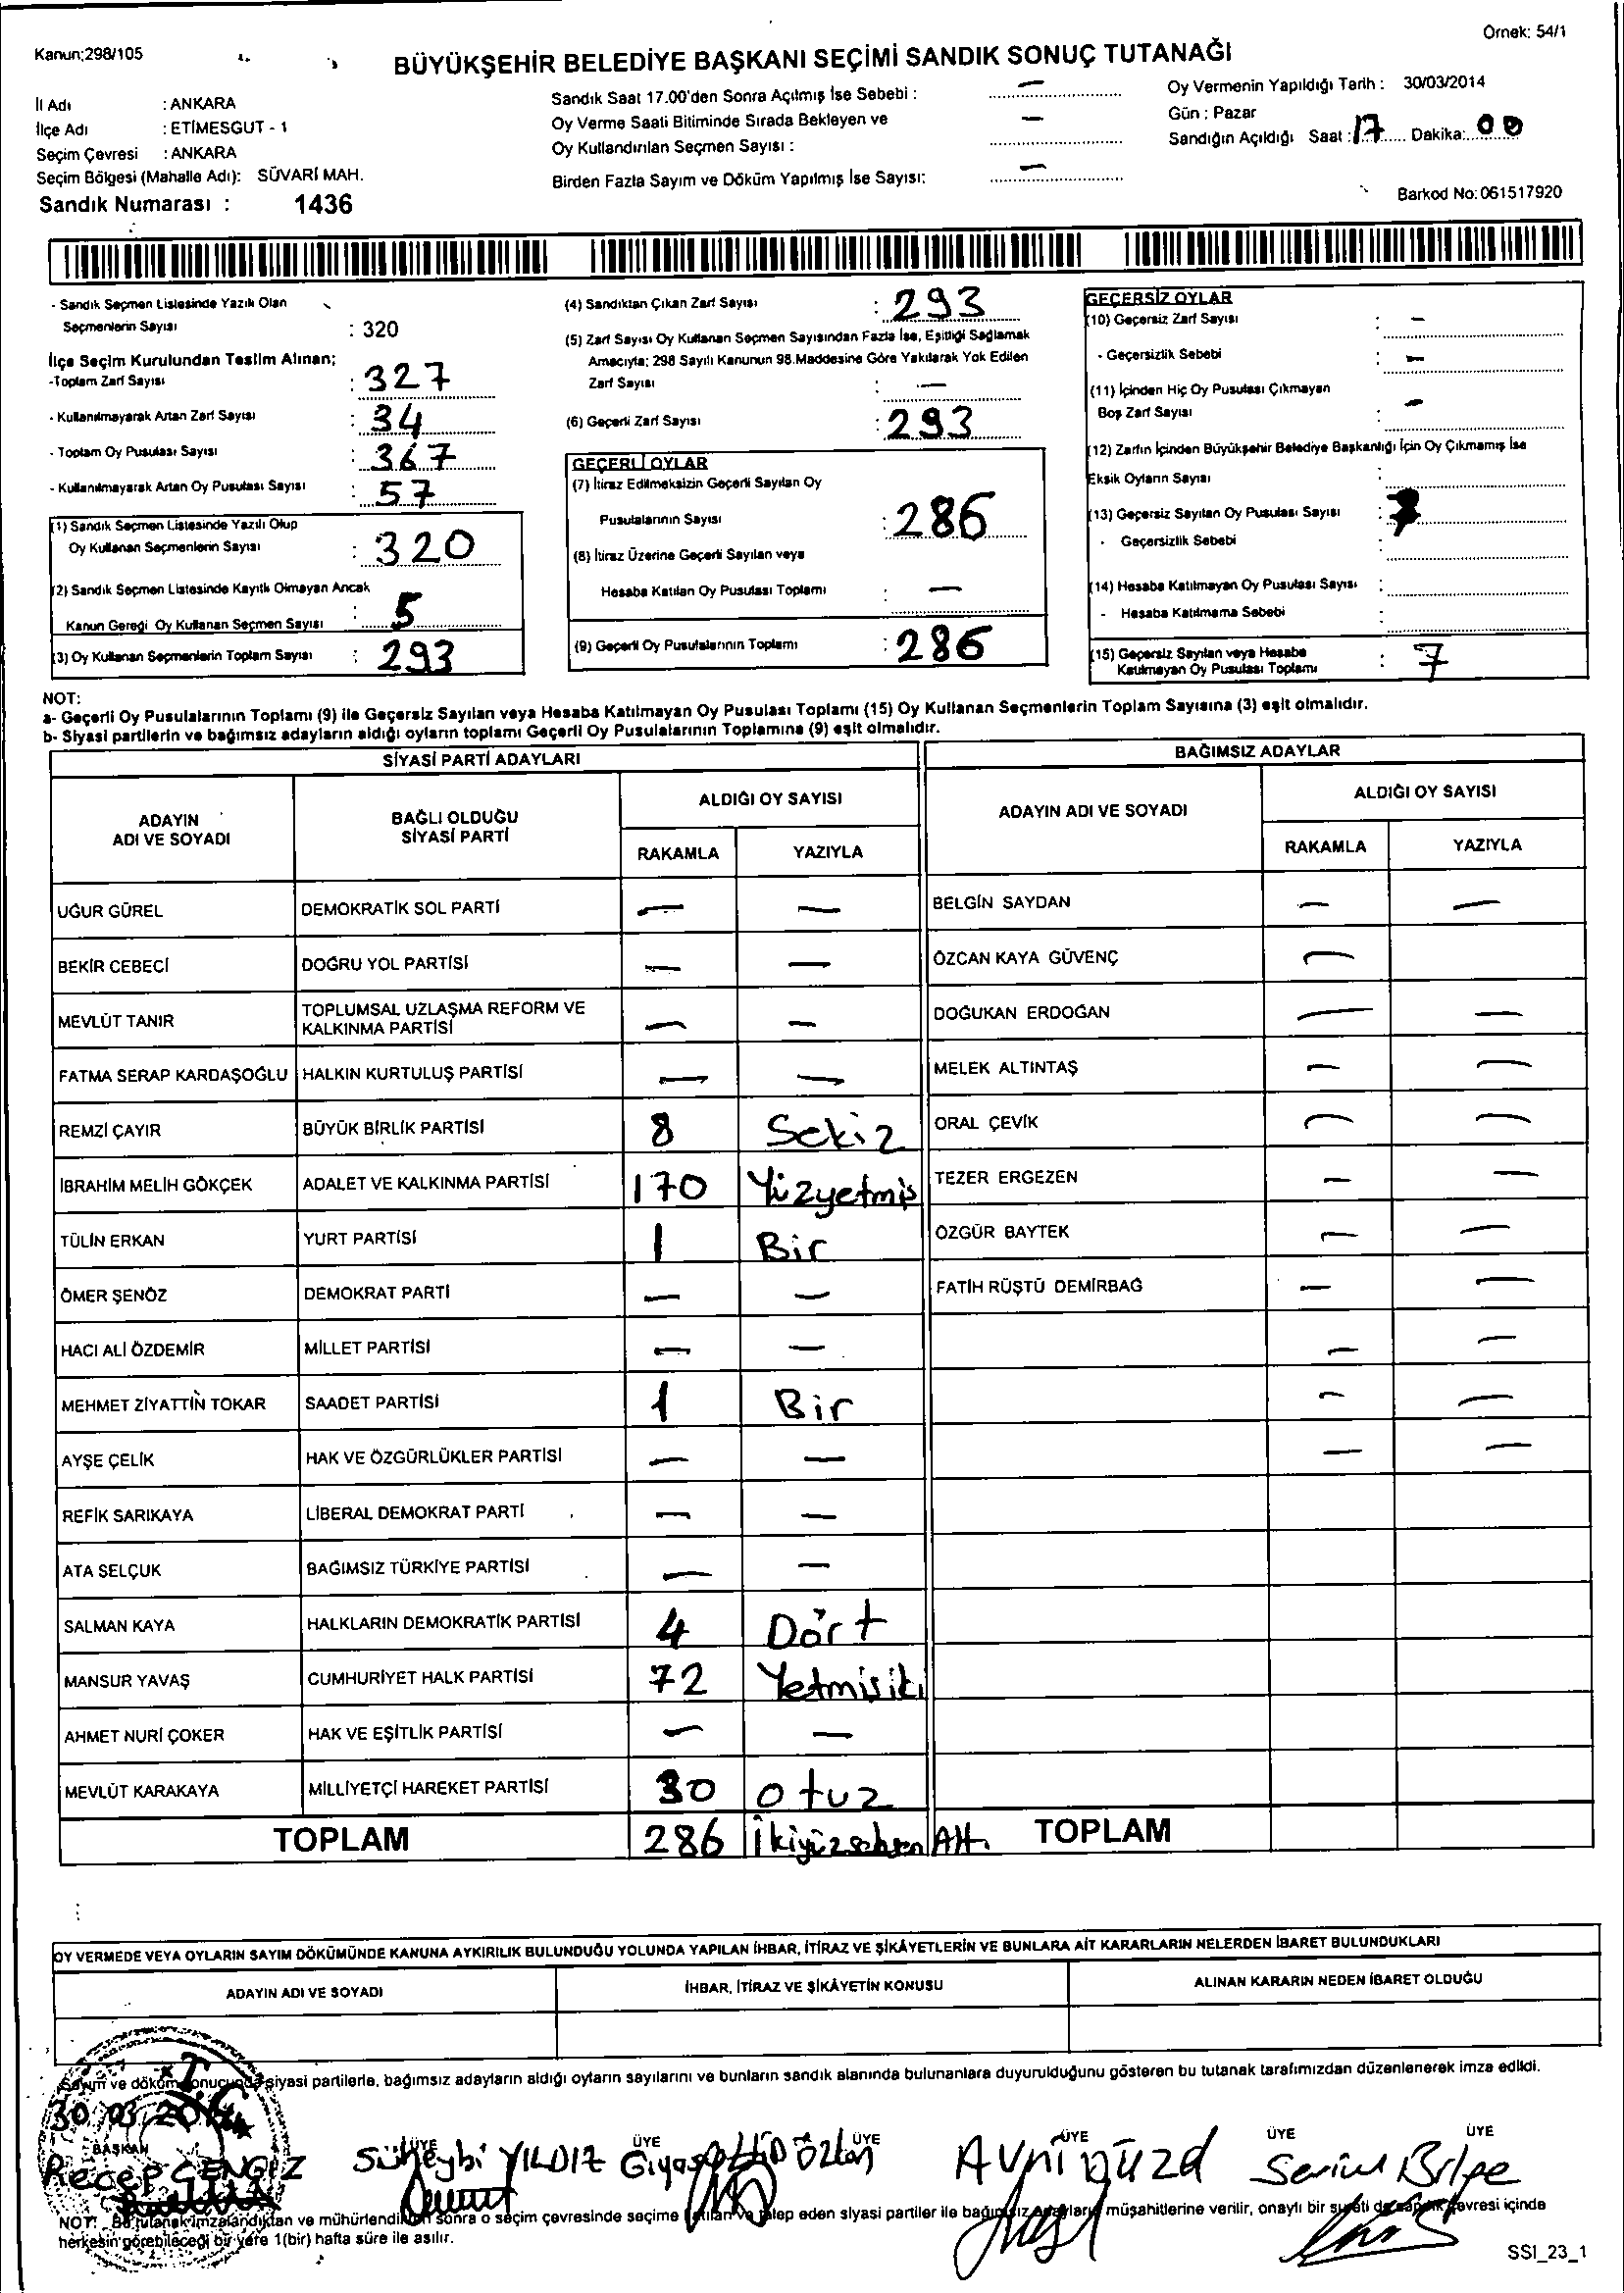 Kanun:298/105
Örnek: 54/1
BÜYÜKŞEHİR BELEDİYE BAŞKANI SEÇİMİ SANDIK SONUÇ TUTANAĞI
İl Adı : ANKARA
İlçe Adı : ETİMESGUT - 1
Seçim Çevresi : ANKARA
Seçim Bölgesi (Mahalle Adı): SÜVARİ MAH.
Sandık Numarası : 1436
Sandık Saat 17.00'den Sonra Açılmış İse Sebebi : —
Oy Verme Saati Bitiminde Sırada Bekleyen ve —
Oy Kullandırılan Seçmen Sayısı :
Birden Fazla Sayım ve Döküm Yapılmış İse Sayısı: —
Oy Vermenin Yapıldığı Tarih : 30/03/2014
Gün : Pazar
Sandığın Açıldığı Saat : 17 Dakika: 00
Barkod No: 061517920
- Sandık Seçmen Listesinde Yazılı Olan
Seçmenlerin Sayısı : 320
İlçe Seçim Kurulundan Teslim Alınan;
-Toplam Zarf Sayısı : 327
- Kullanılmayarak Artan Zarf Sayısı : 34
- Toplam Oy Pusulası Sayısı : 367
- Kullanılmayarak Artan Oy Pusulası Sayısı : 57
(1) Sandık Seçmen Listesinde Yazılı Olup
Oy Kullanan Seçmenlerin Sayısı : 320
(2) Sandık Seçmen Listesinde Kayıtlı Olmayan Ancak
Kanun Gereği Oy Kullanan Seçmen Sayısı : 5
(3) Oy Kullanan Seçmenlerin Toplam Sayısı : 293
(4) Sandıktan Çıkan Zarf Sayısı : 293
(5) Zarf Sayısı Oy Kullanan Seçmen Sayısından Fazla İse, Eşitliği Sağlamak
Amacıyla; 298 Sayılı Kanunun 98.Maddesine Göre Yakılarak Yok Edilen
Zarf Sayısı : —
(6) Geçerli Zarf Sayısı : 293
GEÇERLİ OYLAR
(7) İtiraz Edilmeksizin Geçerli Sayılan Oy
Pusulalarının Sayısı : 286
(8) İtiraz Üzerine Geçerli Sayılan veya
Hesaba Katılan Oy Pusulası Toplamı : —
(9) Geçerli Oy Pusulalarının Toplamı : 286
GEÇERSİZ OYLAR
(10) Geçersiz Zarf Sayısı : —
- Geçersizlik Sebebi : —
(11) İçinden Hiç Oy Pusulası Çıkmayan
Boş Zarf Sayısı : —
(12) Zarfın İçinden Büyükşehir Belediye Başkanlığı İçin Oy Çıkmamış İse
Eksik Oyların Sayısı :
(13) Geçersiz Sayılan Oy Pusulası Sayısı : 7
- Geçersizlik Sebebi :
(14) Hesaba Katılmayan Oy Pusulası Sayısı :
- Hesaba Katılmama Sebebi :
(15) Geçersiz Sayılan veya Hesaba
Katılmayan Oy Pusulası Toplamı : 7
NOT:
a- Geçerli Oy Pusulalarının Toplamı (9) ile Geçersiz Sayılan veya Hesaba Katılmayan Oy Pusulası Toplamı (15) Oy Kullanan Seçmenlerin Toplam Sayısına (3) eşit olmalıdır.
b- Siyasi partilerin ve bağımsız adayların aldığı oyların toplamı Geçerli Oy Pusulalarının Toplamına (9) eşit olmalıdır.
SİYASİ PARTİ ADAYLARI
ADAYIN ADI VE SOYADI
BAĞLI OLDUĞU SİYASİ PARTİ
ALDIĞI OY SAYISI
RAKAMLA YAZIYLA
UĞUR GÜREL DEMOKRATİK SOL PARTİ — —
BEKİR CEBECİ DOĞRU YOL PARTİSİ — —
MEVLÜT TANIR TOPLUMSAL UZLAŞMA REFORM VE KALKINMA PARTİSİ — —
FATMA SERAP KARDAŞOĞLU HALKIN KURTULUŞ PARTİSİ — —
REMZİ ÇAYIR BÜYÜK BİRLİK PARTİSİ 8 Sekiz
İBRAHİM MELİH GÖKÇEK ADALET VE KALKINMA PARTİSİ 170 Yüzyetmiş
TÜLİN ERKAN YURT PARTİSİ 1 Bir
ÖMER ŞENÖZ DEMOKRAT PARTİ — —
HACI ALİ ÖZDEMİR MİLLET PARTİSİ — —
MEHMET ZİYATTİN TOKAR SAADET PARTİSİ 1 Bir
AYŞE ÇELİK HAK VE ÖZGÜRLÜKLER PARTİSİ — —
REFİK SARIKAYA LİBERAL DEMOKRAT PARTİ — —
ATA SELÇUK BAĞIMSIZ TÜRKİYE PARTİSİ — —
SALMAN KAYA HALKLARIN DEMOKRATİK PARTİSİ 4 Dört
MANSUR YAVAŞ CUMHURİYET HALK PARTİSİ 72 Yetmişiki
AHMET NURİ ÇOKER HAK VE EŞİTLİK PARTİSİ — —
MEVLÜT KARAKAYA MİLLİYETÇİ HAREKET PARTİSİ 30 Otuz
TOPLAM 286 İkiyüzseksen Altı
BAĞIMSIZ ADAYLAR
ADAYIN ADI VE SOYADI
ALDIĞI OY SAYISI
RAKAMLA YAZIYLA
BELGİN SAYDAN — —
ÖZCAN KAYA GÜVENÇ —
DOĞUKAN ERDOĞAN — —
MELEK ALTINTAŞ — —
ORAL ÇEVİK — —
TEZER ERGEZEN — —
ÖZGÜR BAYTEK — —
FATİH RÜŞTÜ DEMİRBAĞ — —
— —
— —
— —
TOPLAM
OY VERMEDE VEYA OYLARIN SAYIM DÖKÜMÜNDE KANUNA AYKIRILIK BULUNDUĞU YOLUNDA YAPILAN İHBAR, İTİRAZ VE ŞİKÂYETLERİN VE BUNLARA AİT KARARLARIN NELERDEN İBARET BULUNDUKLARI
ADAYIN ADI VE SOYADI
İHBAR, İTİRAZ VE ŞİKÂYETİN KONUSU
ALINAN KARARIN NEDEN İBARET OLDUĞU
Sayım ve döküm sonucunda siyasi partilerle, bağımsız adayların aldığı oyların sayılarını ve bunların sandık alanında bulunanlara duyurulduğunu gösteren bu tutanak tarafımızdan düzenlenerek imza edildi.
30.03.2014
BAŞKAN ÜYE ÜYE ÜYE ÜYE ÜYE ÜYE
Recep CENGİZ Süheybi YILDIZ Avni
NOT: Bu tutanak imzalandıktan ve mühürlendikten sonra o seçim çevresinde seçime katılan ve talep eden siyasi partiler ile bağımsız adayların müşahitlerine verilir, onaylı bir sureti de sandık çevresi içinde
herkesin görebileceği bir yere 1(bir) hafta süre ile asılır.
SSI_23_1